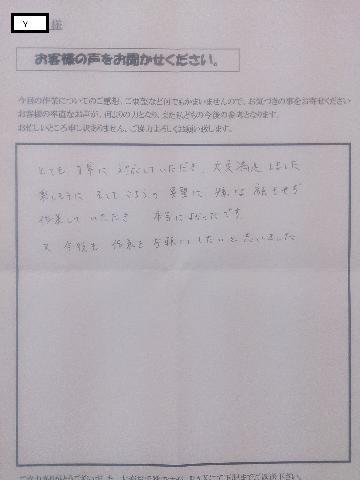 Y 様
お客様の声をお聞かせください。
今回の作業についてのご感想、ご要望など何でもかまいませんので、お気づきの事をお寄せください
お客様の率直なお声が、何よりの力となり、また私どもの今後の参考となります。
お忙しいところ申し訳ありません、ご協力よろしくお願い致します。
とても丁寧に対応していただき、大変満足しました
楽しそうに そして こちらの要望に 嫌な顔もせず
作業していただき 本当によかったです
又 今後も 作業を お願いしたいと思いました
ご協力ありがとうございました。